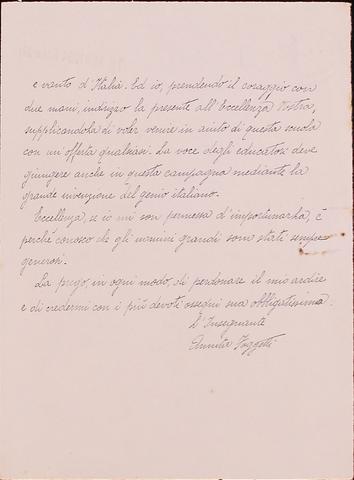 e vanto d'Italia. Ed io, prendendo il coraggio con
due mani, indirizzo la presente all'Eccellenza Vostra,
supplicandola di voler venire in aiuto di questa scuola
con un'offerta qualsiasi. La voce degli educatori deve
giungere anche in questa campagna mediante la
grande invenzione del genio italiano.
Eccellenza, se io mi son permessa d'importunarla, è
perché conosco che gli uomini grandi sono stati sempre
generosi.
La prego, in ogni modo, di perdonare il mio ardire
e di credermi con i più devoti ossequi sua obbligatissima.
L'Insegnante
Annita